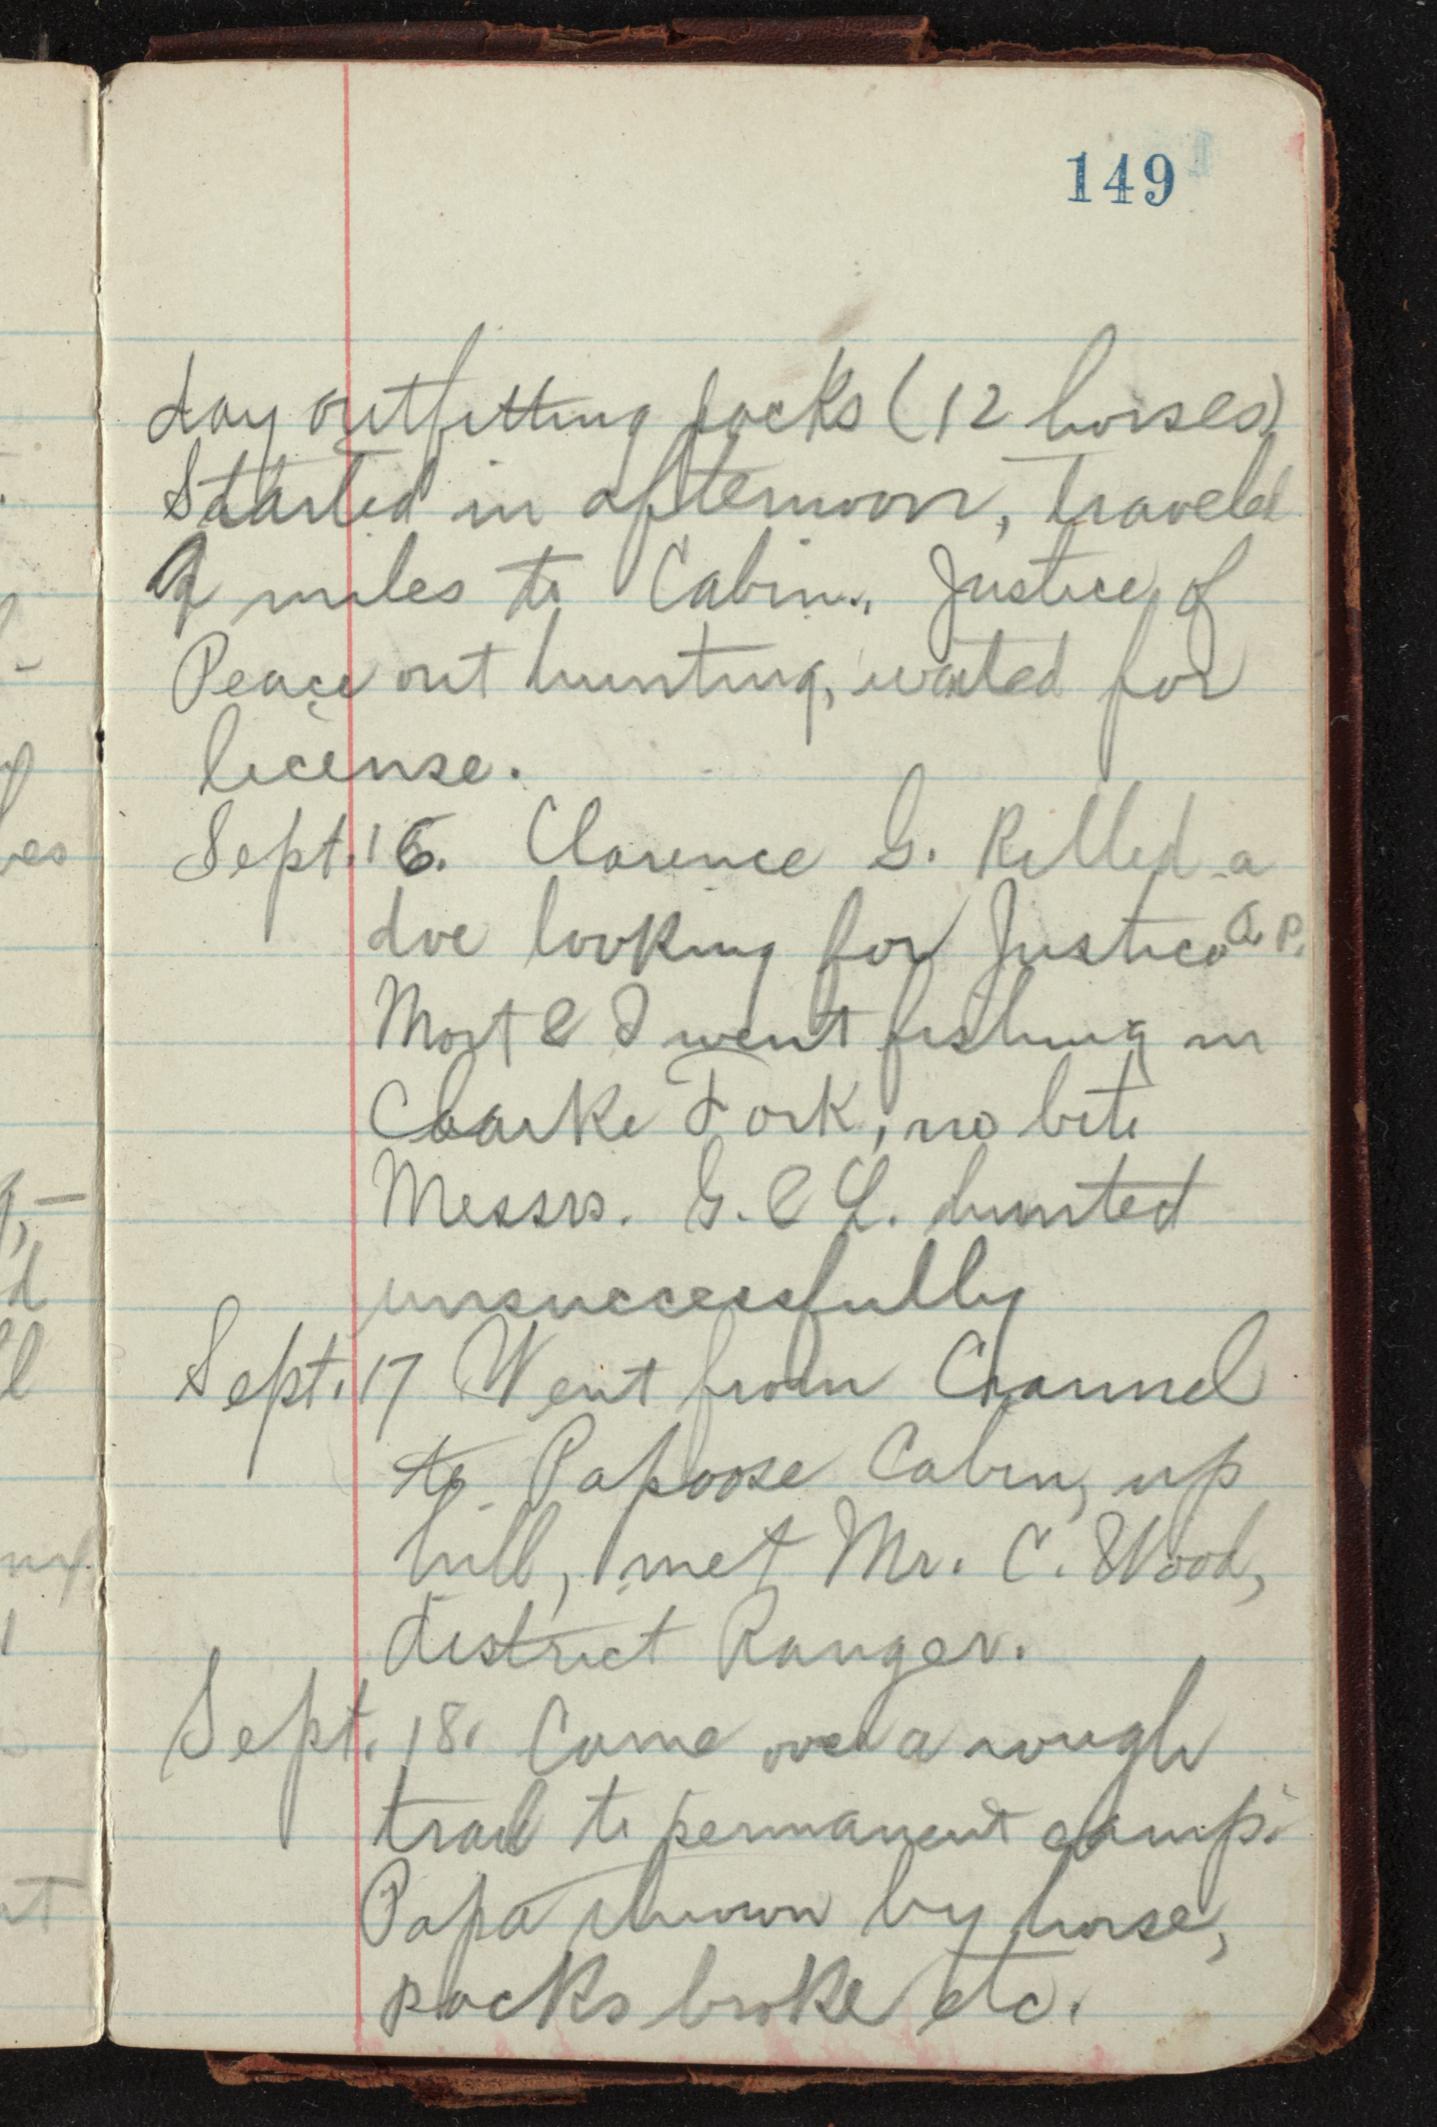 149
day outfitting packs (12 horses)
Started in afternoon, traveld
9 miles to Cabin., Justice of
Peace out hunting, waited for
license.
Sept. 16. Clarence G. Killed a
doe looking for Justice a P.
Mort & I went fishing in
Cloarke Fork, no bite
Messrs. G. & L. hunted
unsuccessfully
Sept. 17 Went from Channel
to Papoose Cabin, up
hill, met Mr. C. Wood,
district Ranger.
Sept. 18. Came over a rough
trail to permanent camp.
Papa thrown by horse,
packs broke etc.